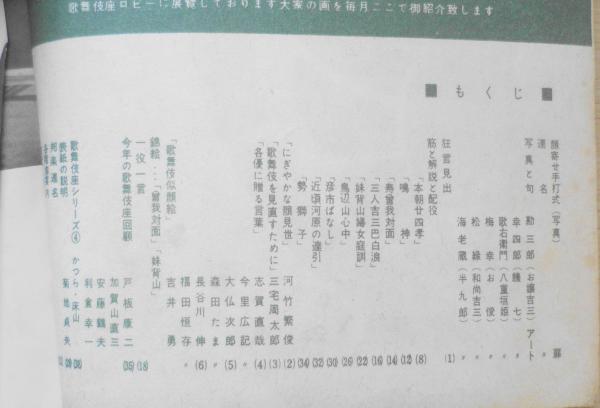 歌舞伎座ロビーに展覧しております大家の画を毎月ここで御紹介致します
■ もくじ ■
顔寄せ手打式（写真） 扉
連名 〃
写真と句 勘三郎（お嬢吉三） アート
幸四郎（膳七） 〃
歌右衛門（八重垣姫） 〃
梅幸（お俊） 〃
松緑（和尚吉三） 〃
海老蔵（半九郎） 〃
狂言見出 (1)
筋と解説と配役
「本朝廿四孝」 (8)
「鳴神」 (12)
「寿曾我対面」 (14)
「三人吉三巴白浪」 (16)
「妹背山婦女庭訓」 (22)
「鳥辺山心中」 (26)
「彦市ばなし」 (29)
「近頃河原の達引」 (30)
「勢獅子」 (32)
「にぎやかな顔見世」 河竹繁俊 (2)
「歌舞伎を見直すために」 三宅周太郎 (3)
「各優に贈る言葉」 志賀直哉 (4)
今里広記 〃
大仏次郎 (5)
森田たま 〃
長谷川伸 (6)
福田恒存 〃
「歌舞伎似顔絵」 吉井勇
錦絵…「曾我対面」「妹背山」
一役一言 (18)
今年の歌舞伎座回顧 戸板康二 (35)
加賀山直三
安藤鶴夫
利倉幸一
歌舞伎座シリーズ④ かつら・床山
表紙の説明 菊地貞夫
邦楽連名